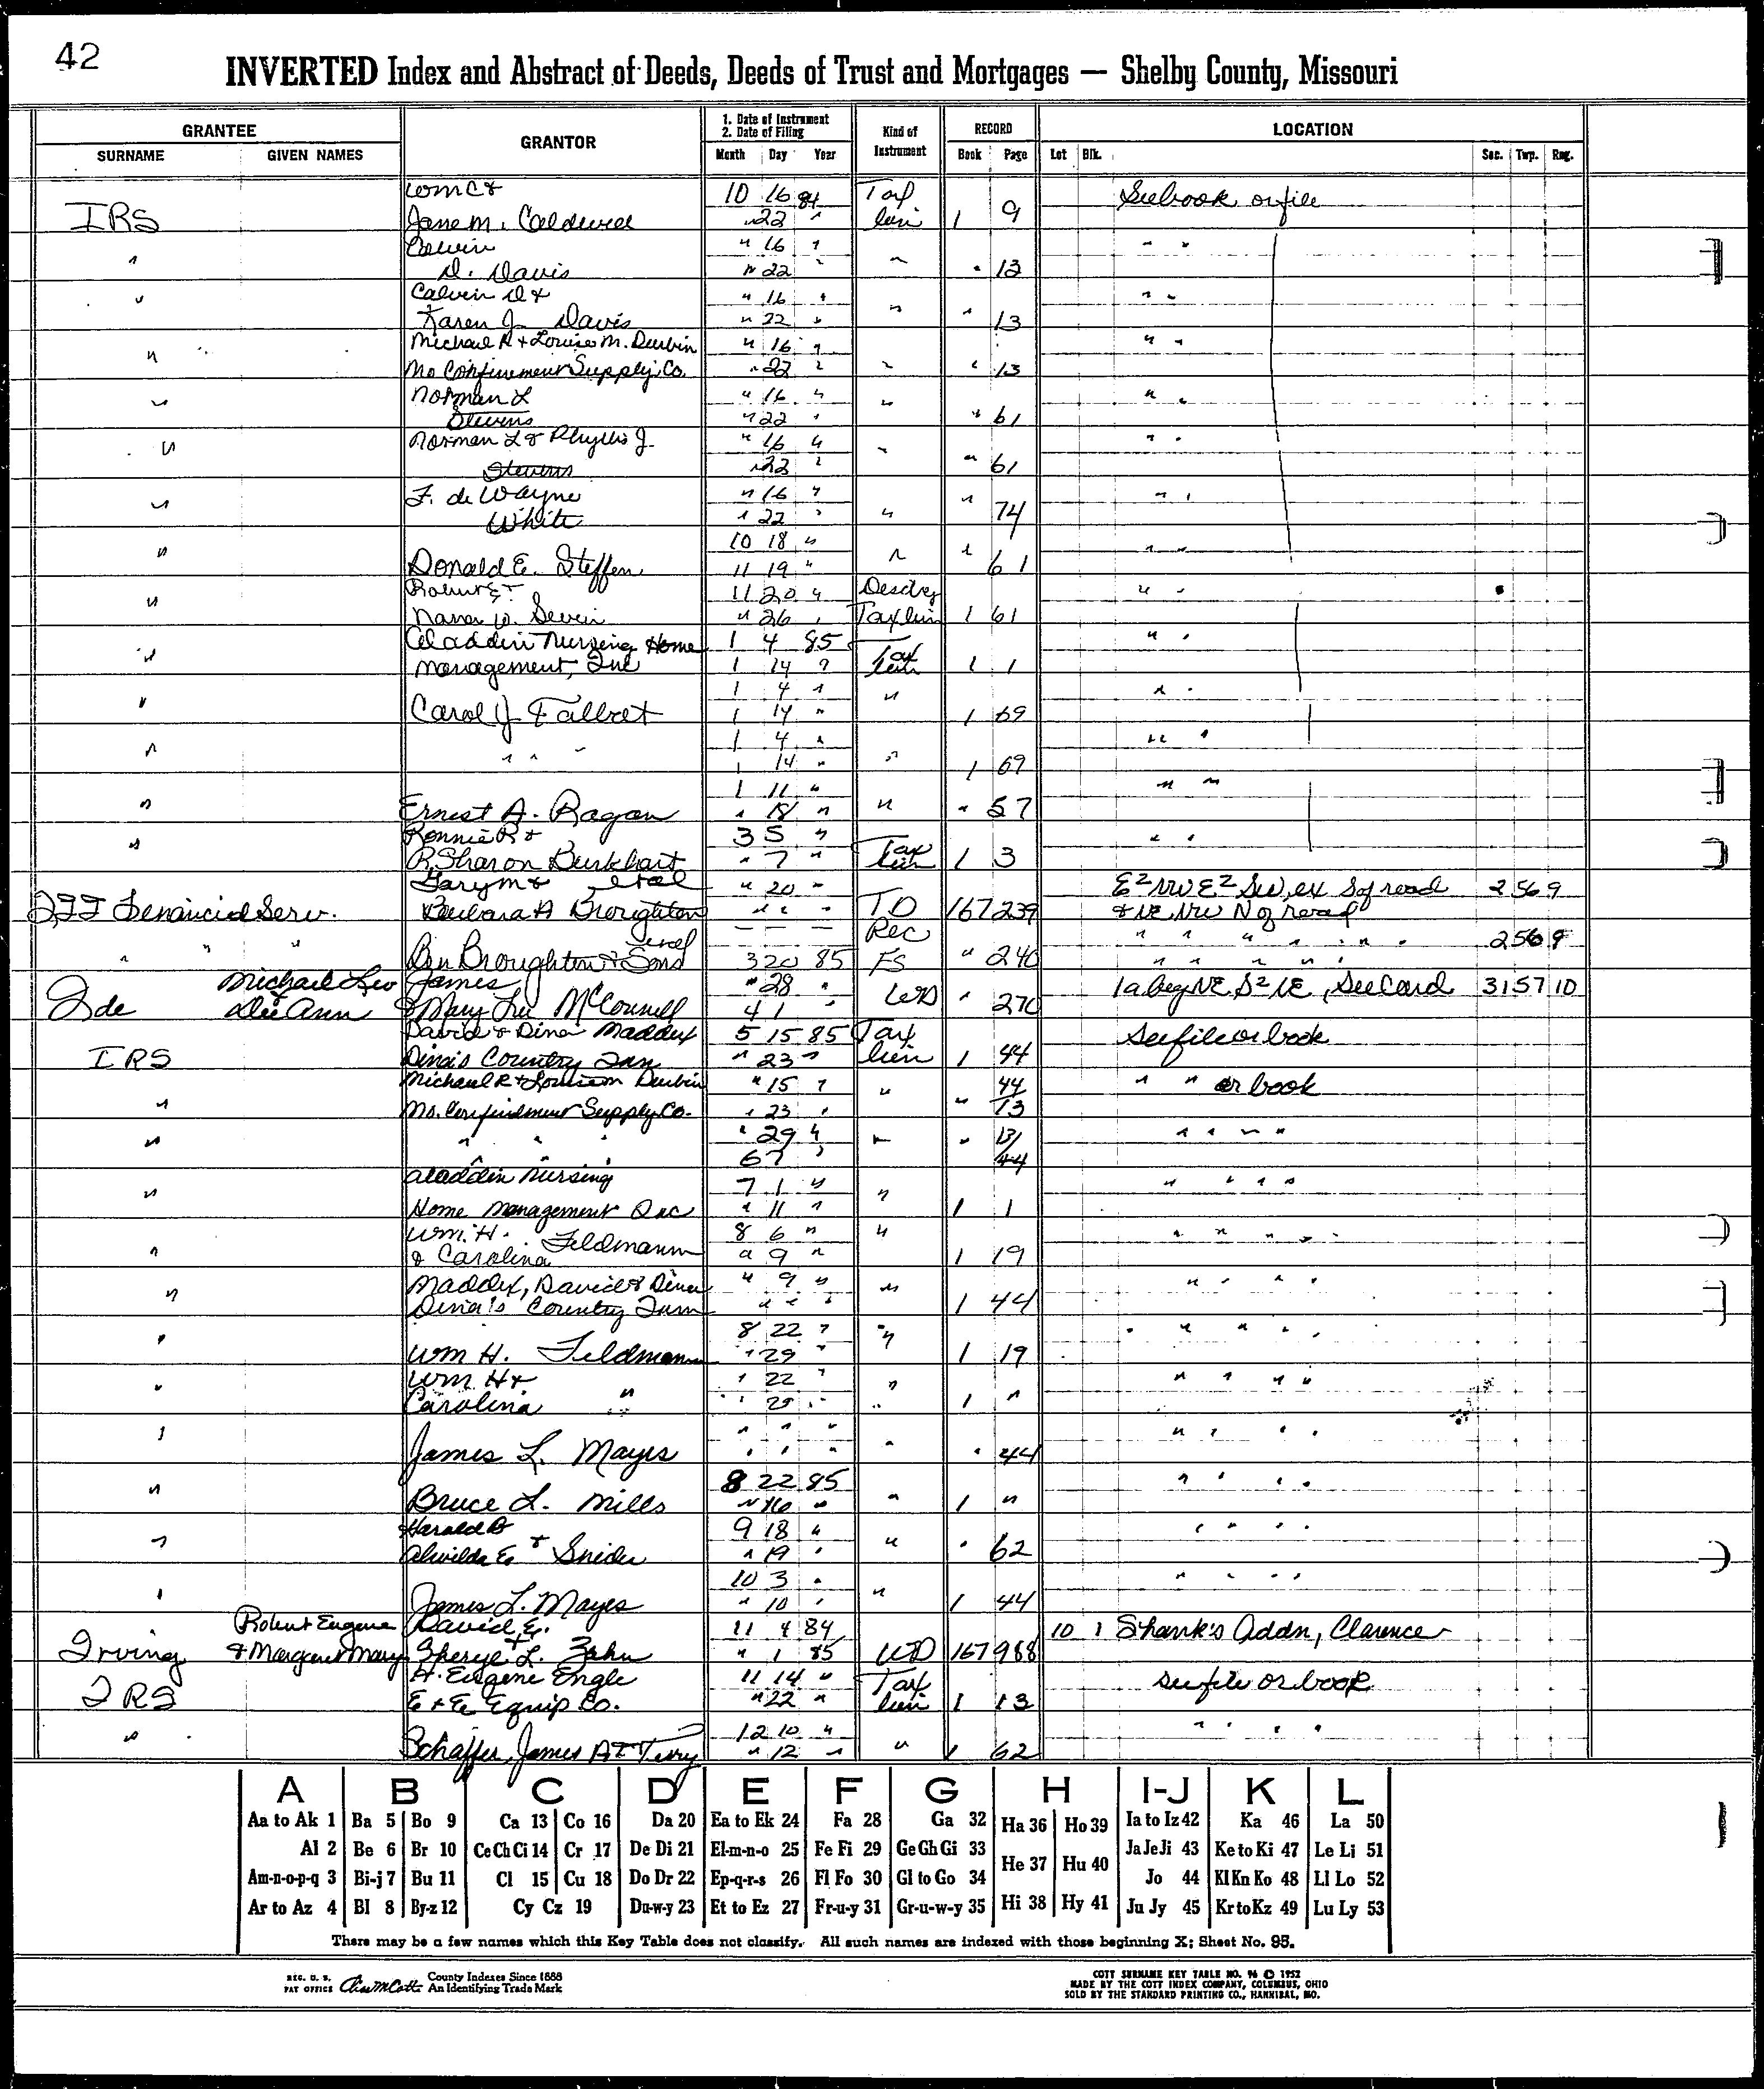 42
INVERTED Index and Abstract of Deeds, Deeds of Trust and Mortgages — Shelby County, Missouri
GRANTEE GRANTOR 1. Date of Instrument 2. Date of Filing Kind of Instrument RECORD LOCATION
SURNAME GIVEN NAMES Month Day Year Book Page Lot Blk. Sec. Twp. Rng.
Wm C & 10 16 84 Tax See book or file
IRS Jane M. Caldwell " 22 " lien 1 9
Calvin " 16 " " "
" D. Davis " 22 " " " 13
Calvin D & " 16 " " "
" Karen J. Davis " 22 " " " 13
Michael R + Louise M. Durbin " 16 " " "
" Mo Confinement Supply Co. " 22 " " " 13
Norman L " 16 " " "
" Stevens " 22 " " " 61
Norman L & Phyllis J. " 16 " " "
" Stevens " 22 " " " 61
F. de Wayne " 16 " " "
" White " 22 " " " 74
10 18 " " "
" Donald E. Steffen 11 19 " " " 61
Robert E + 11 20 " " "
" W. 26 " Tax lien 1 61
Aladdin Nursing Home 1 4 85 " "
" Management, Inc 1 14 " Tax lien 1 1
1 4 " " "
" Carol J. 1 14 " " 1 69
1 4 " " "
" " " " 1 14 " " 1 69
1 11 " " "
" Ernest A. Ragan " 18 " " " 57
Ronnie R & 3 5 " " "
" R. Sharon Burkhart " 7 " Tax lien 1 3
Gary M & etal " 20 " E² NW E² SW, ex S of road 2 56 9
ITT Financial Serv. Barbara A Broughton " " " TD 167 239 & NE NW N of road
" " etal — — — Rec " " " " " " 2 56 9
Ben Broughton & Sons 3 20 85 FS " 240 " " " " "
Michael Leo James " 28 " 1a beg NE S² NE, See Card 31 57 10
Ide & Dee Ann & Mary Lou McConnell 4 1 WD " 270
David & Dina Maddex 5 15 85 Tax See file or book
IRS Dina's Country Inn " 23 " lien 1 44
Michael R + Louise M Durbin " 15 " " 44 " " or book
" Mo. Confinement Supply Co. " 23 " " 13
" " " " " 29 " " " 13/ " " " "
6 7 " 44
Aladdin Nursing 7 1 " " " " "
" Home Management Inc " 11 " " 1 1
Wm. H. Feldmann 8 6 " " " " " "
" & Carolina " 9 " 1 19
Maddex, David & Dina " 9 " " " " " "
" Dina's Country Inn " " " 1 44
8 22 " " " " " "
" Wm H. Feldmann " 29 " 1 19
Wm H & " 22 " " " " " "
" Carolina " " 29 " 1 "
" " " " " " "
" James L. Mayes " " " " " 44
8 22 85 " " " "
" Bruce L. Mills " " " 1 "
Harold B 9 18 " " " " "
" Alwilda E & Snider " 19 " " " 62
10 3 " " " " "
" James L. Mayes " 10 " " 1 44
Robert Eugene David E. 11 4 84 10 1 Shank's Addn, Clarence
Irving & Margaret Mary & Sheryl L. Zahn " 1 85 WD 167 988
H. Eugene Engle 11 14 " Tax see file or book
IRS E + E Equip Co. " 22 " lien 1 13
12 10 " " " " "
" Schaffer, James A & Terry " 12 " " 1 62
A B C D E F G H I-J K L
Aa to Ak 1 Ba 5 Bo 9 Ca 13 Co 16 Da 20 Ea to Ek 24 Fa 28 Ga 32 Ha 36 Ho 39 Ia to Iz 42 Ka 46 La 50
Al 2 Be 6 Br 10 Ce Ch Ci 14 Cr 17 De Di 21 El-m-n-o 25 Fe Fi 29 Ge Gh Gi 33 He 37 Hu 40 Ja Je Ji 43 Ke to Ki 47 Le Li 51
Am-n-o-p-q 3 Bi-j 7 Bu 11 Cl 15 Cu 18 Do Dr 22 Ep-q-r-s 26 Fl Fo 30 Gl to Go 34 Jo 44 Kl Kn Ko 48 Ll Lo 52
Ar to Az 4 Bl 8 By-z 12 Cy Cz 19 Du-w-y 23 Et to Ez 27 Fr-u-y 31 Gr-u-w-y 35 Hi 38 Hy 41 Ju Jy 45 Kr to Kz 49 Lu Ly 53
There may be a few names which this Key Table does not classify. All such names are indexed with those beginning X; Sheet No. 95.
REG. U. S. PAT OFFICE County Indexes Since 1888 An Identifying Trade Mark
COTT SURNAME KEY TABLE NO. 96 © 1952
MADE BY THE COTT INDEX COMPANY, COLUMBUS, OHIO
SOLD BY THE STANDARD PRINTING CO., HANNIBAL, MO.